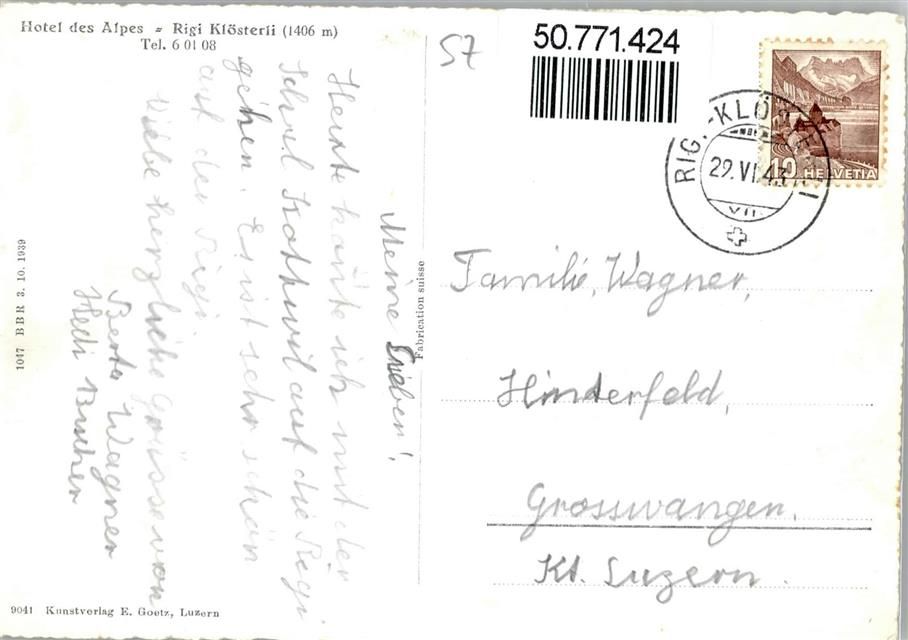 Hotel des Alpes - Rigi Klösterli (1406 m)
Tel. 6 01 08
57
50.771.424
RIGI-KLÖSTERLI
29.VI.43
VII
10 HELVETIA
Meine Lieben!
Heute konnte ich mit der
Schul Kottwil auf die Rigi
gehen. Es ist sehr schön
auf der Rigi.
Viele herzliche Grüsse von
Berta Wagner
Hedi Bucher
Fabrication suisse
Familie, Wagner,
Hinderfeld,
Grosswangen.
Kt. Luzern.
1047 BBR 3. 10. 1939
9041 Kunstverlag E. Goetz, Luzern